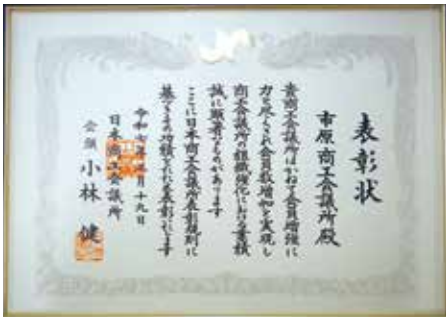 表彰状
市原商工会議所殿
貴商工会議所はかねて会員増強に
力を尽され会員数増加を実現し
商工会議所の組織強化における業績
誠に顕著なものがあります
ここに日本商工会議所表彰規則に
基づきその功績をたたえ表彰いたします
令和七年 月十九日
日本商工会議所
会頭 小林 健